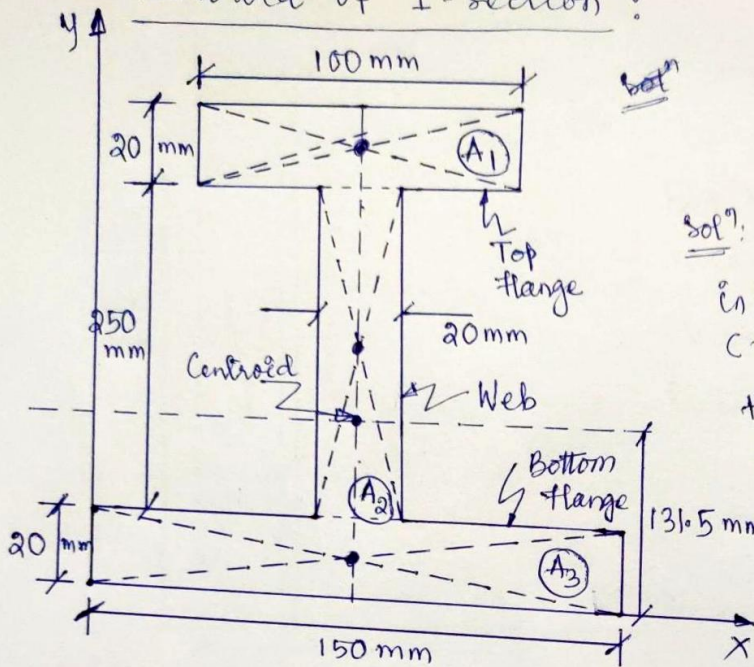 of I-section :
y
100 mm
20 mm
A1
Solⁿ
Top
flange
Solⁿ:
in
250
mm
20mm
Centroid
Web
Bottom
flange
A2
131.5 mm
20 mm
A3
150 mm
X